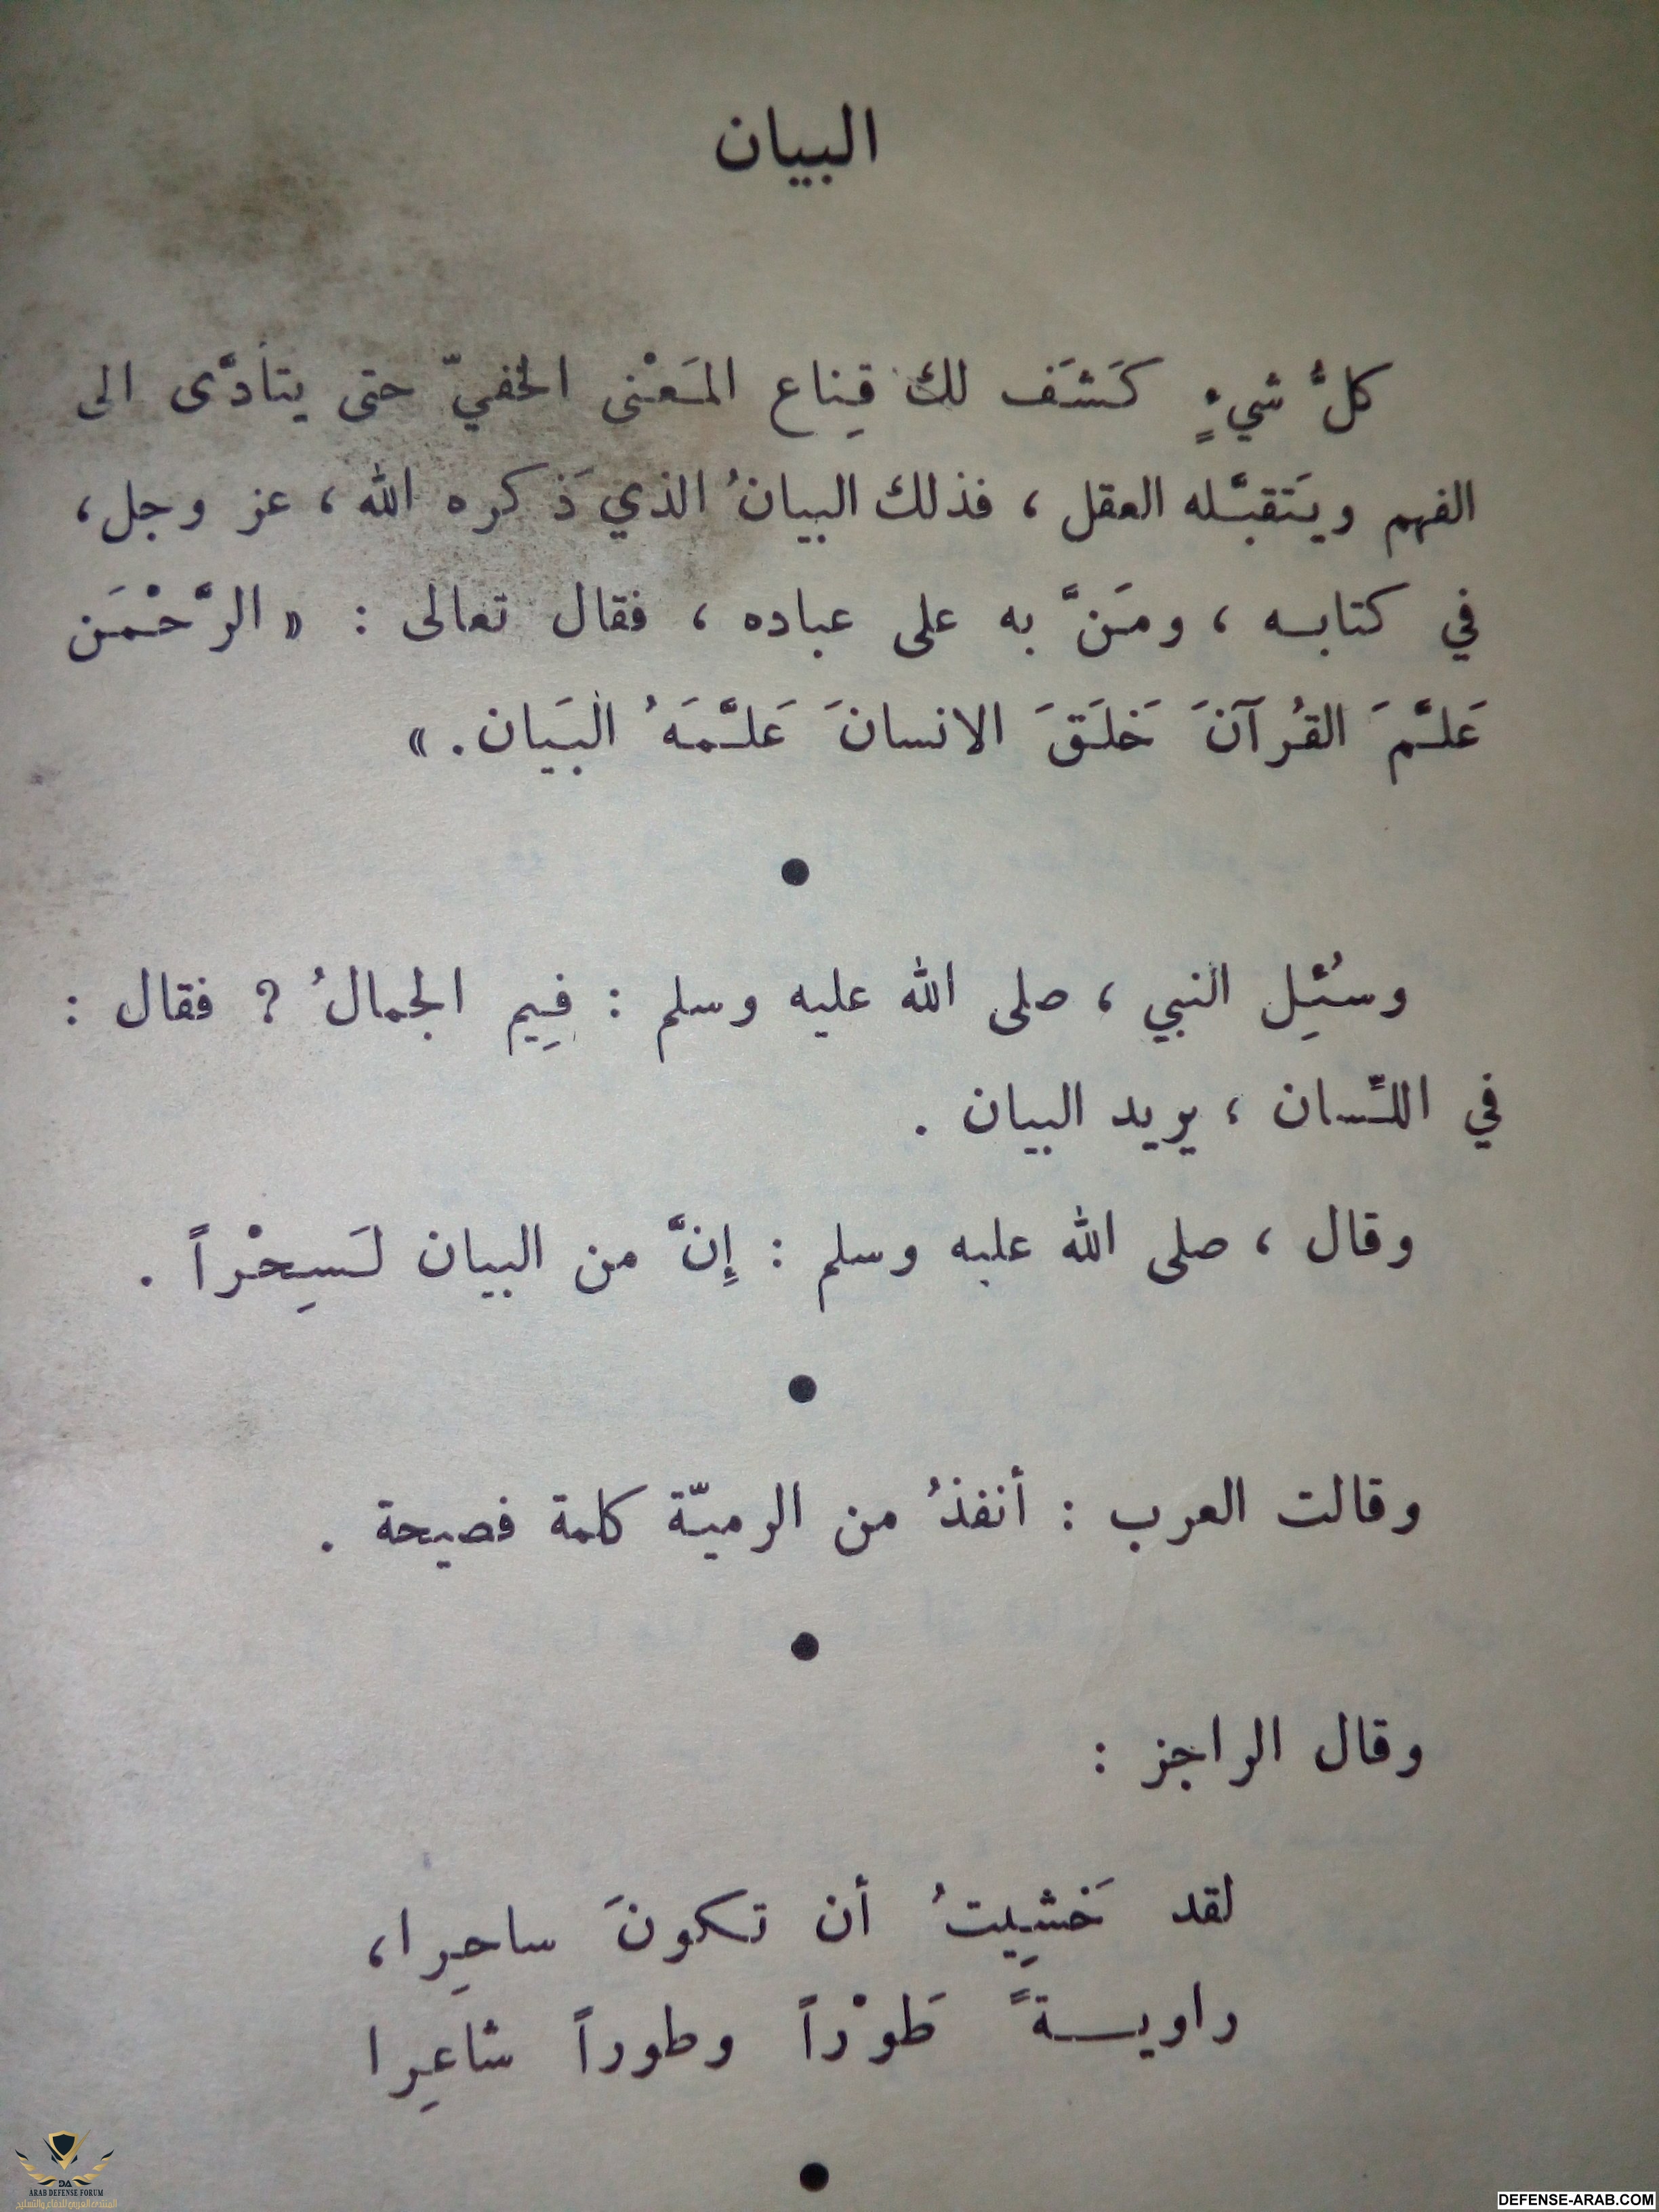 البيان
كلُّ شيءٍ كَشَف لك قِناع المَعْنى الخفيّ حتى يتأدَّى الى
الفهم ويَتقبَّله العقل ، فذلك البيانُ الذي ذَكره الله ، عز وجل ،
في كتابه ، ومَنَّ به على عباده ، فقال تعالى : « الرَّحْمَن
عَلَّمَ القُرآنَ خَلَقَ الانسانَ عَلَّمَهُ الْبَيان . »
●
وسُئِل النبي ، صلى الله عليه وسلم : فِيم الجمالُ ? فقال :
في اللِّسان ، يريد البيان .
وقال ، صلى الله عليه وسلم : إِنَّ من البيان لَسِحْراً .
●
وقالت العرب : أنفذُ من الرميّة كلمة فصيحة .
●
وقال الراجز :
لقد خَشِيتُ أن تكونَ ساحِرا ،
راويةً طَوْراً وطوراً شاعِرا
●
DA
ARAB DEFENSE FORUM
المنتدى العربي للدفاع والتسليح
DEFENSE-ARAB.COM